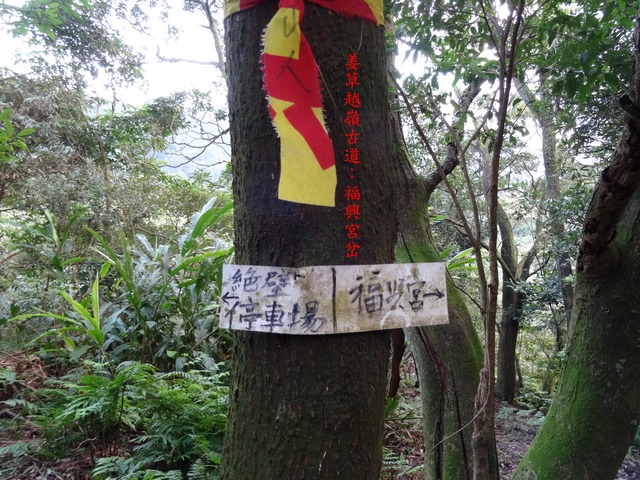 山人
姜草越嶺古道：福興宮岔
絕壁
←停車場
福興宮→